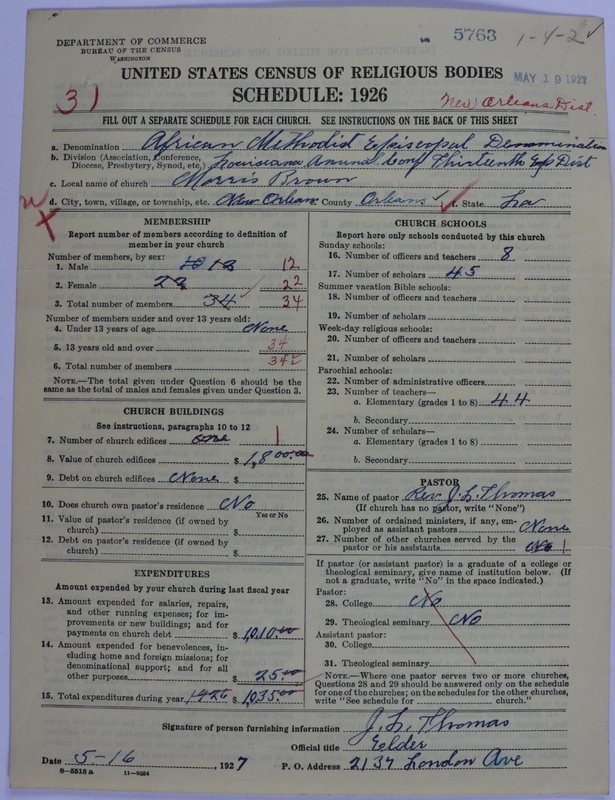 DEPARTMENT OF COMMERCE
BUREAU OF THE CENSUS
WASHINGTON
5763
1-4-2
UNITED STATES CENSUS OF RELIGIOUS BODIES
MAY 19 1927
SCHEDULE: 1926
31
New Orleans Dist.
FILL OUT A SEPARATE SCHEDULE FOR EACH CHURCH. SEE INSTRUCTIONS ON THE BACK OF THIS SHEET
a. Denomination African Methodist Episcopal Denomination
b. Division (Association, Conference, Diocese, Presbytery, Synod, etc.) Louisiana Annual Conf Thirteenth Dist
c. Local name of church Morris Brown
d. City, town, village, or township, etc. New Orleans County Orleans f. State La
MEMBERSHIP
Report number of members according to definition of
member in your church
Number of members, by sex:
1. Male 12 12
2. Female 22 22
3. Total number of members 34 34
Number of members under and over 13 years old:
4. Under 13 years of age None
5. 13 years old and over 34
6. Total number of members 34
NOTE.—The total given under Question 6 should be the
same as the total of males and females given under Question 3.
CHURCH BUILDINGS
See instructions, paragraphs 10 to 12
7. Number of church edifices one 1
8. Value of church edifices $ 1,800.00
9. Debt on church edifices None $
10. Does church own pastor's residence No
Yes or No
11. Value of pastor's residence (if owned by
church) $
12. Debt on pastor's residence (if owned by
church) $
EXPENDITURES
Amount expended by your church during last fiscal year
13. Amount expended for salaries, repairs,
and other running expenses; for im-
provements or new buildings; and for
payments on church debt $ 1,010.00
14. Amount expended for benevolences, in-
cluding home and foreign missions; for
denominational support; and for all
other purposes $ 25.00
15. Total expenditures during year $ 1,035.00
CHURCH SCHOOLS
Report here only schools conducted by this church
Sunday schools:
16. Number of officers and teachers 8
17. Number of scholars 45
Summer vacation Bible schools:
18. Number of officers and teachers
19. Number of scholars
Week-day religious schools:
20. Number of officers and teachers
21. Number of scholars
Parochial schools:
22. Number of administrative officers
23. Number of teachers—
a. Elementary (grades 1 to 8) 44
b. Secondary
24. Number of scholars—
a. Elementary (grades 1 to 8)
b. Secondary
PASTOR
25. Name of pastor Rev. J. L. Thomas
(If church has no pastor, write "None")
26. Number of ordained ministers, if any, em-
ployed as assistant pastors None
27. Number of other churches served by the
pastor or his assistants No 1
If pastor (or assistant pastor) is a graduate of a college or
theological seminary, give name of institution below. (If
not a graduate, write "No" in the space indicated.)
Pastor:
28. College No
29. Theological seminary No
Assistant pastor:
30. College
31. Theological seminary
NOTE.—Where one pastor serves two or more churches,
Questions 28 and 29 should be answered only on the schedule
for one of the churches; on the schedules for the other churches,
write "See schedule for church."
Signature of person furnishing information J. L. Thomas
Official title Eelder
Date 5-16, 1927 P. O. Address 2137 London Ave
8—5518 a 11—9034